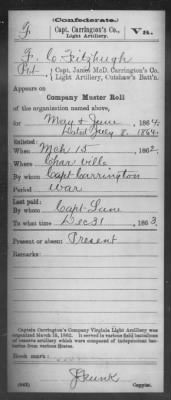 (Confederate.)
F Capt. Carrington's Co., Light Artillery. Va.
F. C. Fitzhugh
Pvt, Capt. James McD. Carrington's Co.
Light Artillery, Cutshaw's Batt'n.
Appears on
Company Muster Roll
of the organization named above,
for May & June, 1864.
Dated July 8, 1864.
Enlisted:
When Mch 15, 1862.
Where Char'ville
By whom Capt Carrington
Period War
Last paid:
By whom Capt Lane
To what time Dec 31, 1863.
Present or absent Present
Remarks:
Captain Carrington's Company Virginia Light Artillery was
organized March 15, 1862. It served in various field battalions
of reserve artillery which were composed of independent bat-
teries from various States.
Book mark:
(642)
Copyist.